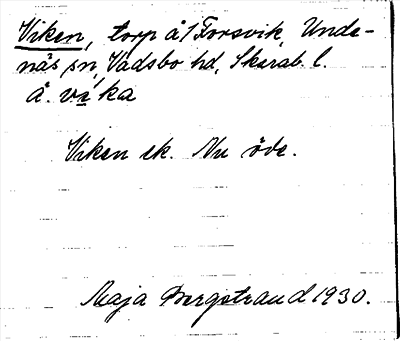 Viken, torp å Forsvik, Unde-
näs sn, Vadsbo hd, Skarab. l.
å. vi̱ka
Viken ek. Nu öde.
Maja Bergstrand 1930.